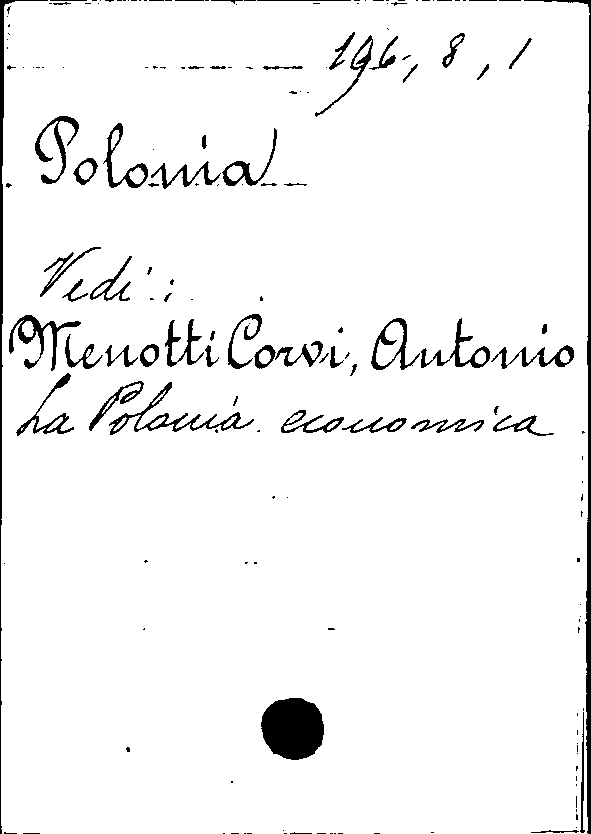 196, 8, 1
Polonia
Vedi:
Menotti Corvi, Antonio
La Polonia economica